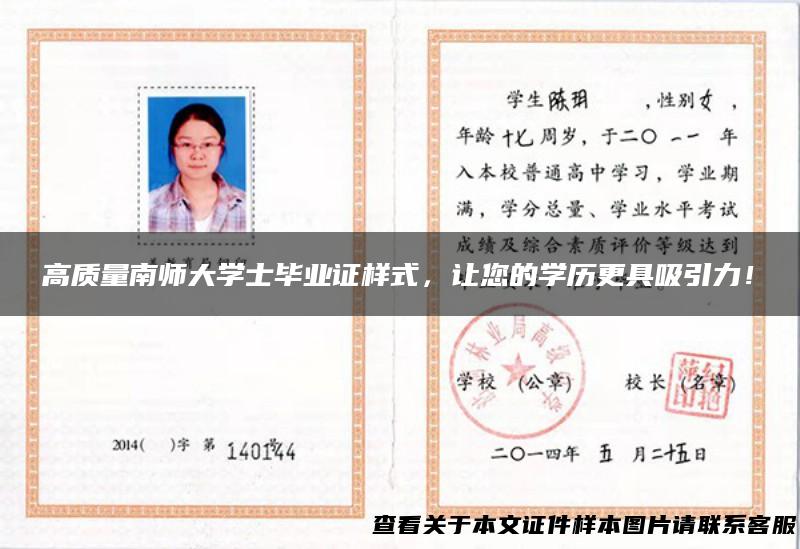 学生陈玥，性别女，
年龄十七周岁，于二〇一一年
入本校普通高中学习，学业期
满，学分总量、学业水平考试
成绩及综合素质评价等级达到
高质量南师大学士毕业证样式，让您的学历更具吸引力！
林业局高级
学校（公章） 校长（名章）
2014( )字 第 140144 号
二〇一四年 五 月二十五日
查看关于本文证件样本图片请联系客服